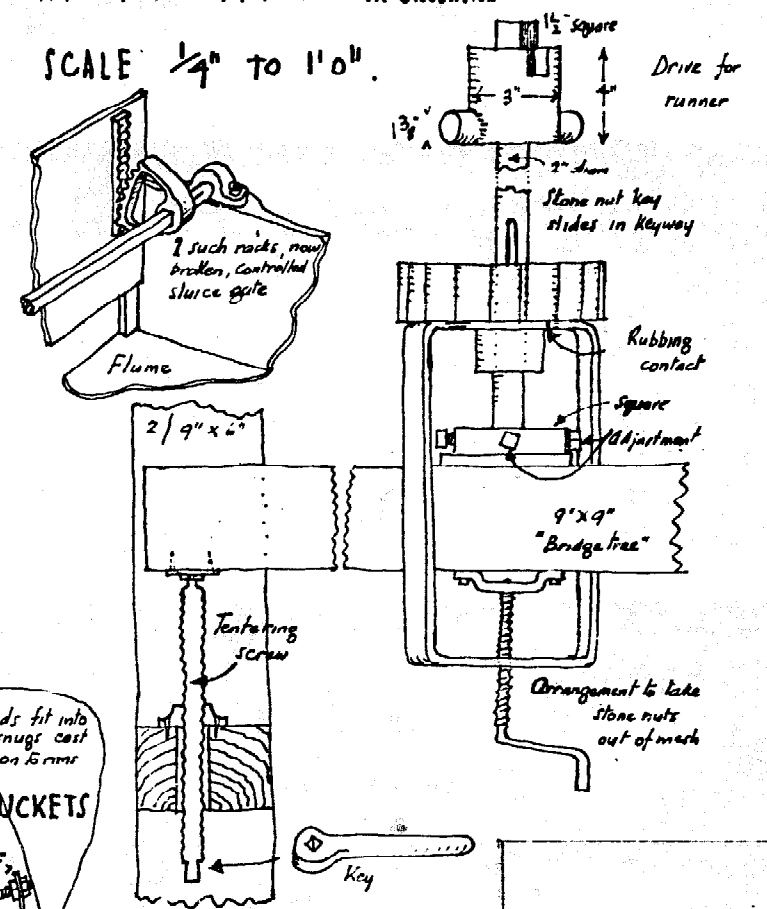 SCALE 1/4" TO 1'0".
1½" square
Drive for
runner
3"
4"
1⅜"
2" diam
Stone nut key
slides in keyway
2 such racks, now
broken, controlled
sluice gate
Flume
Rubbing
contact
square
Adjustment
2/9" x 6"
9" x 9"
"Bridgetree"
Tentering
screw
Arrangement to take
stone nuts
out of mesh
ds fit into
snugs cast
on rims
UCKETS
Key